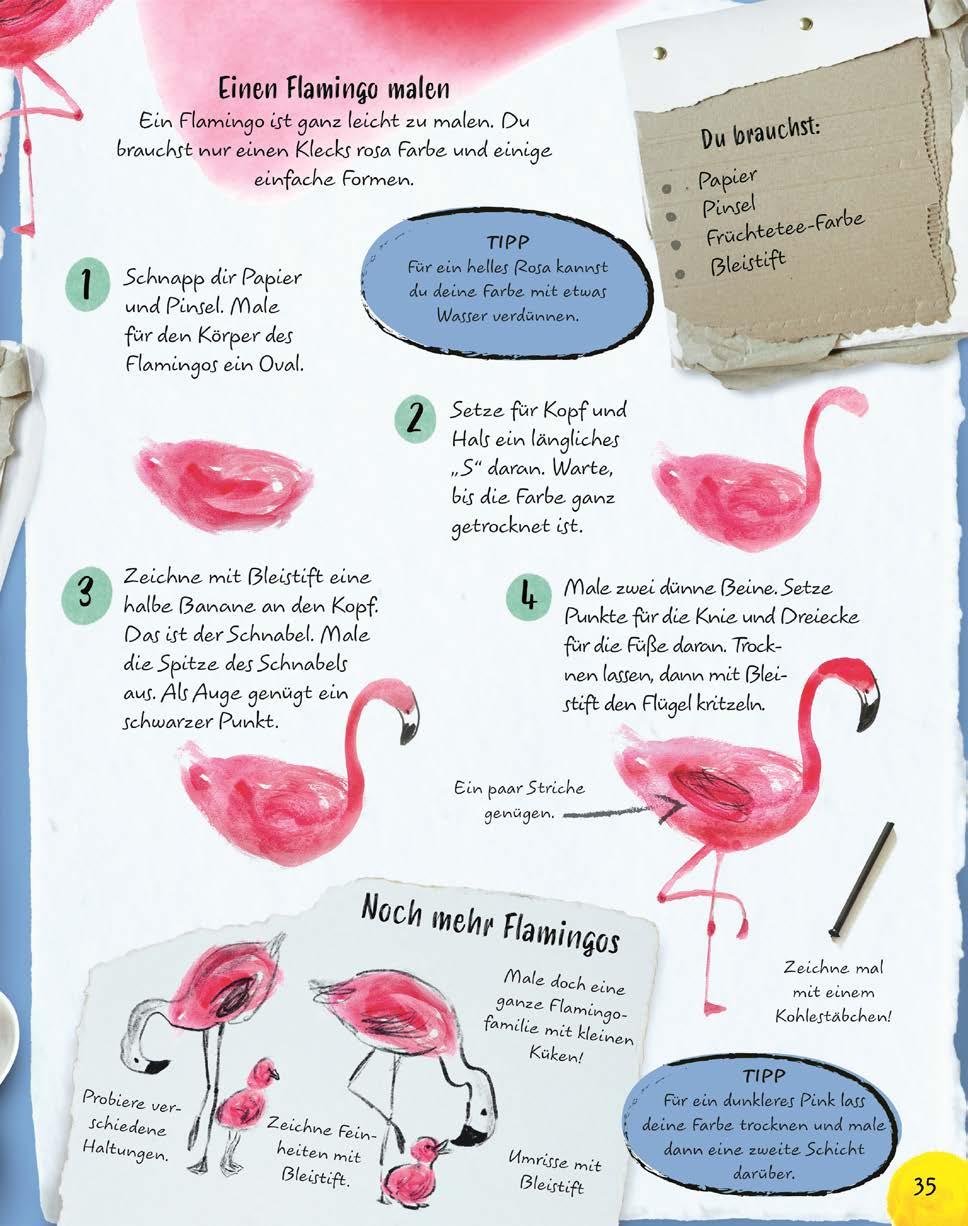 Einen Flamingo malen
Ein Flamingo ist ganz leicht zu malen. Du
brauchst nur einen Klecks rosa Farbe und einige
einfache Formen.
Du brauchst:
• Papier
• Pinsel
• Früchtetee-Farbe
• Bleistift
TIPP
Für ein helles Rosa kannst
du deine Farbe mit etwas
Wasser verdünnen.
1
Schnapp dir Papier
und Pinsel. Male
für den Körper des
Flamingos ein Oval.
2
Setze für Kopf und
Hals ein längliches
„S“ daran. Warte,
bis die Farbe ganz
getrocknet ist.
3
Zeichne mit Bleistift eine
halbe Banane an den Kopf.
Das ist der Schnabel. Male
die Spitze des Schnabels
aus. Als Auge genügt ein
schwarzer Punkt.
4
Male zwei dünne Beine. Setze
Punkte für die Knie und Dreiecke
für die Füße daran. Trock-
nen lassen, dann mit Blei-
stift den Flügel kritzeln.
Ein paar Striche
genügen.
Zeichne mal
mit einem
Kohlestäbchen!
Noch mehr Flamingos
Male doch eine
ganze Flamingo-
familie mit kleinen
Küken!
Probiere ver-
schiedene
Haltungen.
Zeichne Fein-
heiten mit
Bleistift.
Umrisse mit
Bleistift
TIPP
Für ein dunkleres Pink lass
deine Farbe trocknen und male
dann eine zweite Schicht
darüber.
35